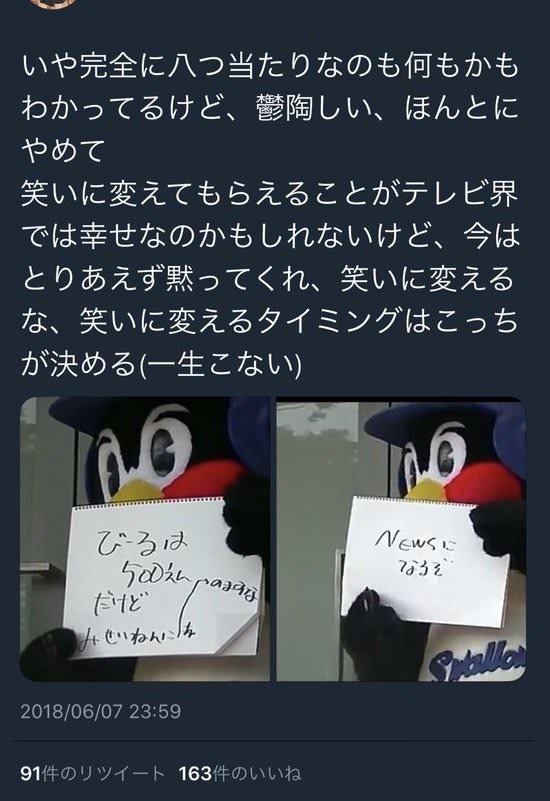 いや完全に八つ当たりなのも何もかも
わかってるけど、鬱陶しい、ほんとに
やめて
笑いに変えてもらえることがテレビ界
では幸せなのかもしれないけど、今は
とりあえず黙ってくれ、笑いに変える
な、笑いに変えるタイミングはこっち
が決める(一生こない)
びーるは
500えん
だけど
みせいねんにね
のますな
NEWSに
なるぞ
Swallow
2018/06/07 23:59
91件のリツイート 163件のいいね